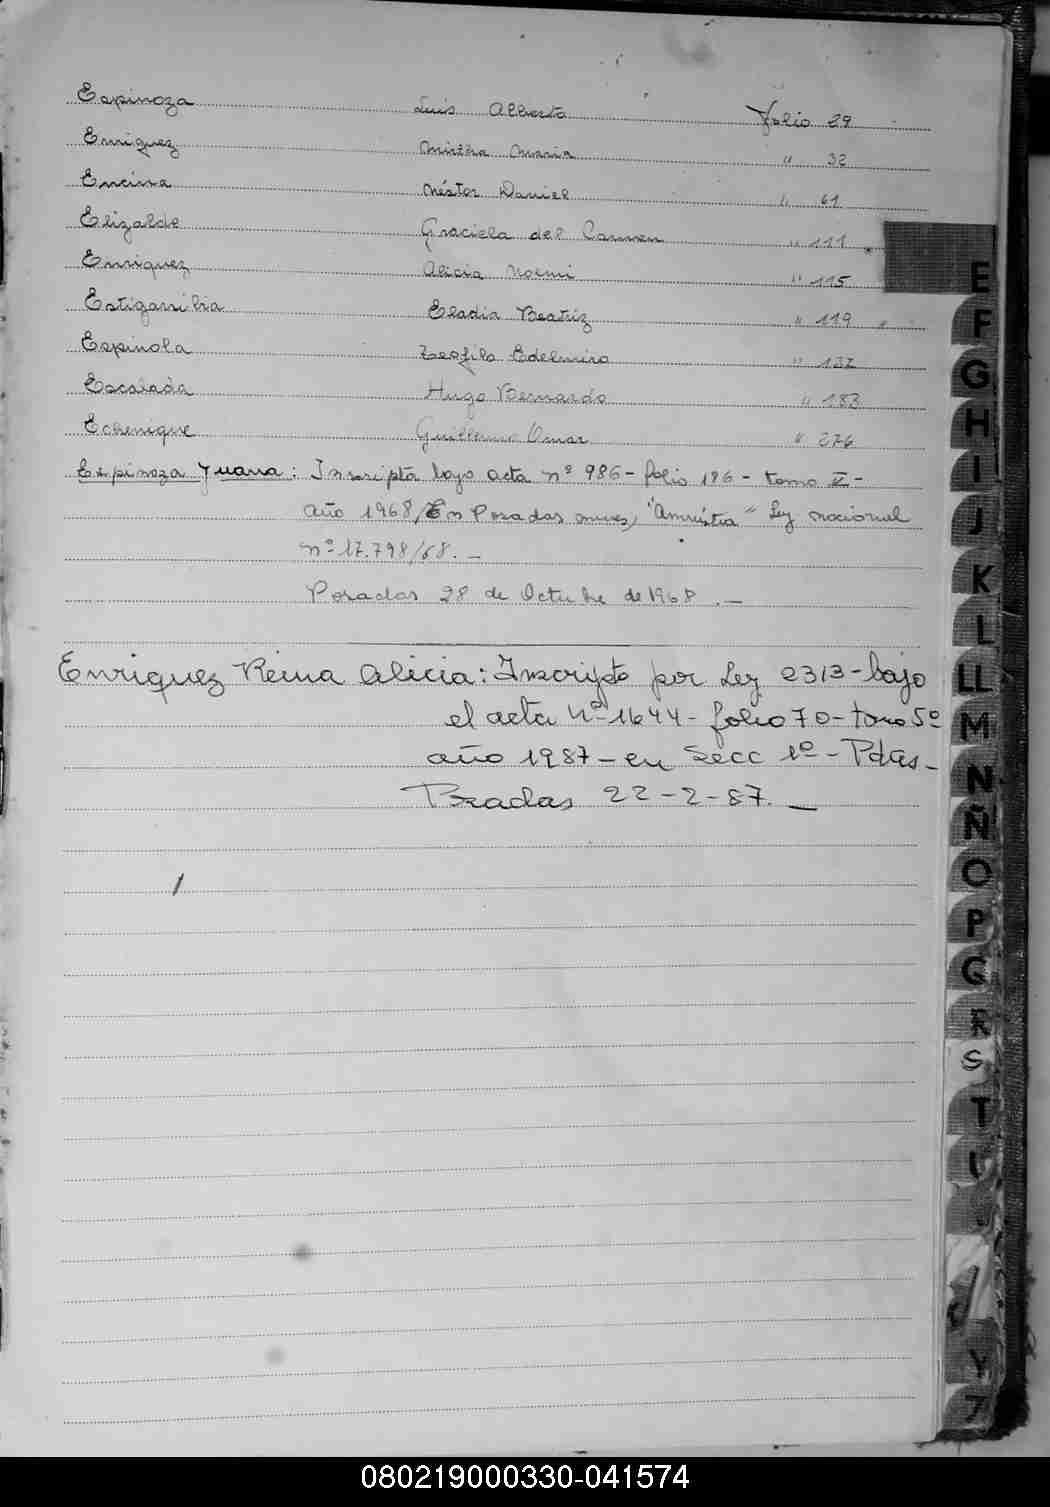 Espinoza Luis Alberto Folio 29
Enriquez Mirtha Maria " 32
Encina Néstor Daniel " 61
Elizalde Graciela del Carmen " 111
Enriquez Alicia Noemi " 115
Estigarribia Eladia Beatriz " 119 "
Espinola Teofilo Edelmiro " 132
Escalada Hugo Bernardo " 183
Echenique Guillermo Omar " 276
Espinoza Juana: Inscripta bajo acta nº 986 - folio 196 - tomo V -
año 1968/En Posadas mnes/ "Amnistia" Ley nacional
nº 17.798/68. -
Posadas 28 de Octubre de 1968. -
Enriquez Reina Alicia: Inscripto por Ley 2313 - bajo
el acta Nº 1644 - folio 70 - tomo 5º
año 1987 - en Secc 1º - Pdas -
Posadas 22-2-87. -
E
F
G
H
I
J
K
L
LL
M
N
Ñ
O
P
R
S
T
Y
080219000330-041574